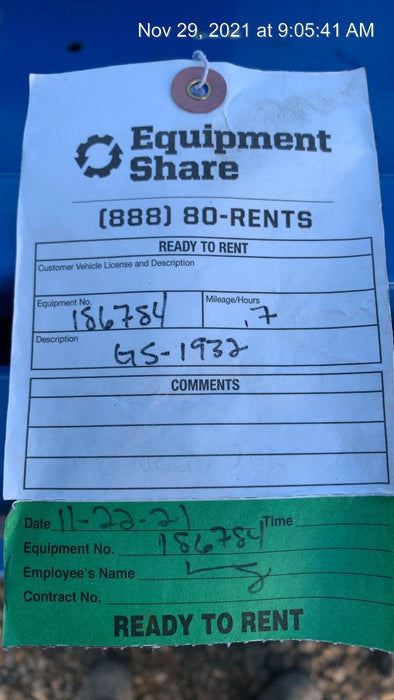 Nov 29, 2021 at 9:05:41 AM
Equipment
Share
(888) 80-RENTS
READY TO RENT
Customer Vehicle License and Description
Equipment No. 186784 Mileage/Hours .7
Description GS-1932
COMMENTS
Date 11-22-21 Time
Equipment No. 186784
Employee's Name
Contract No.
READY TO RENT